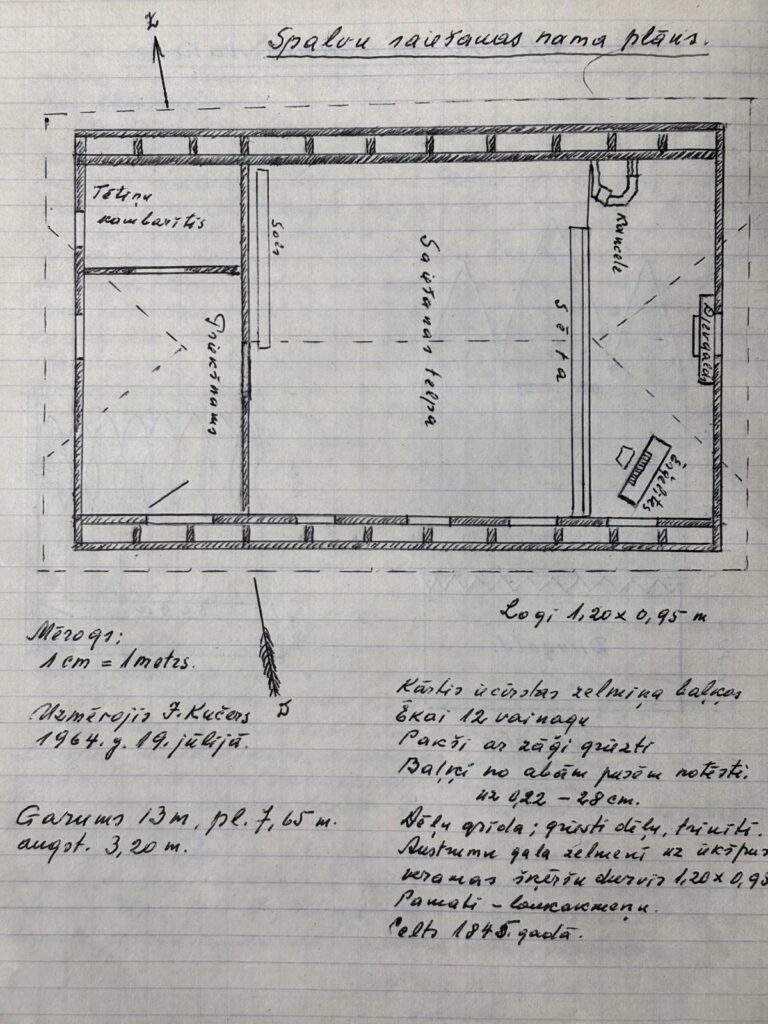 Z
Spalvu saiešanas nama plāns.
Tētiņu
kambarītis
Sols
Saiešanas telpa
Kancele
Sēta
Dievgalds
Priekšnams
Ērģelītes
D
Logi 1,20 x 0,95 m
Mērogs:
1 cm = 1 metrs.
Uzmērojis J. Kučers
1964. g. 19. jūlijā.
Garums 13 m, pl. 7,65 m.
augst. 3,20 m.
Kārtis iecirstas zelmiņa baļķos
Ēkai 12 vainagu
Pakši ar zāģi griezti
Baļķi no abām pusēm notēsti.
uz 0,22 – 28 cm.
Dēļu grīda; griesti dēļu, trinīti.
Austrumu gala zelmenī uz iekšpus
veramas šķēršu durvis 1,20 x 0,95
Pamati – laukakmeņu.
Celts 1845. gadā.